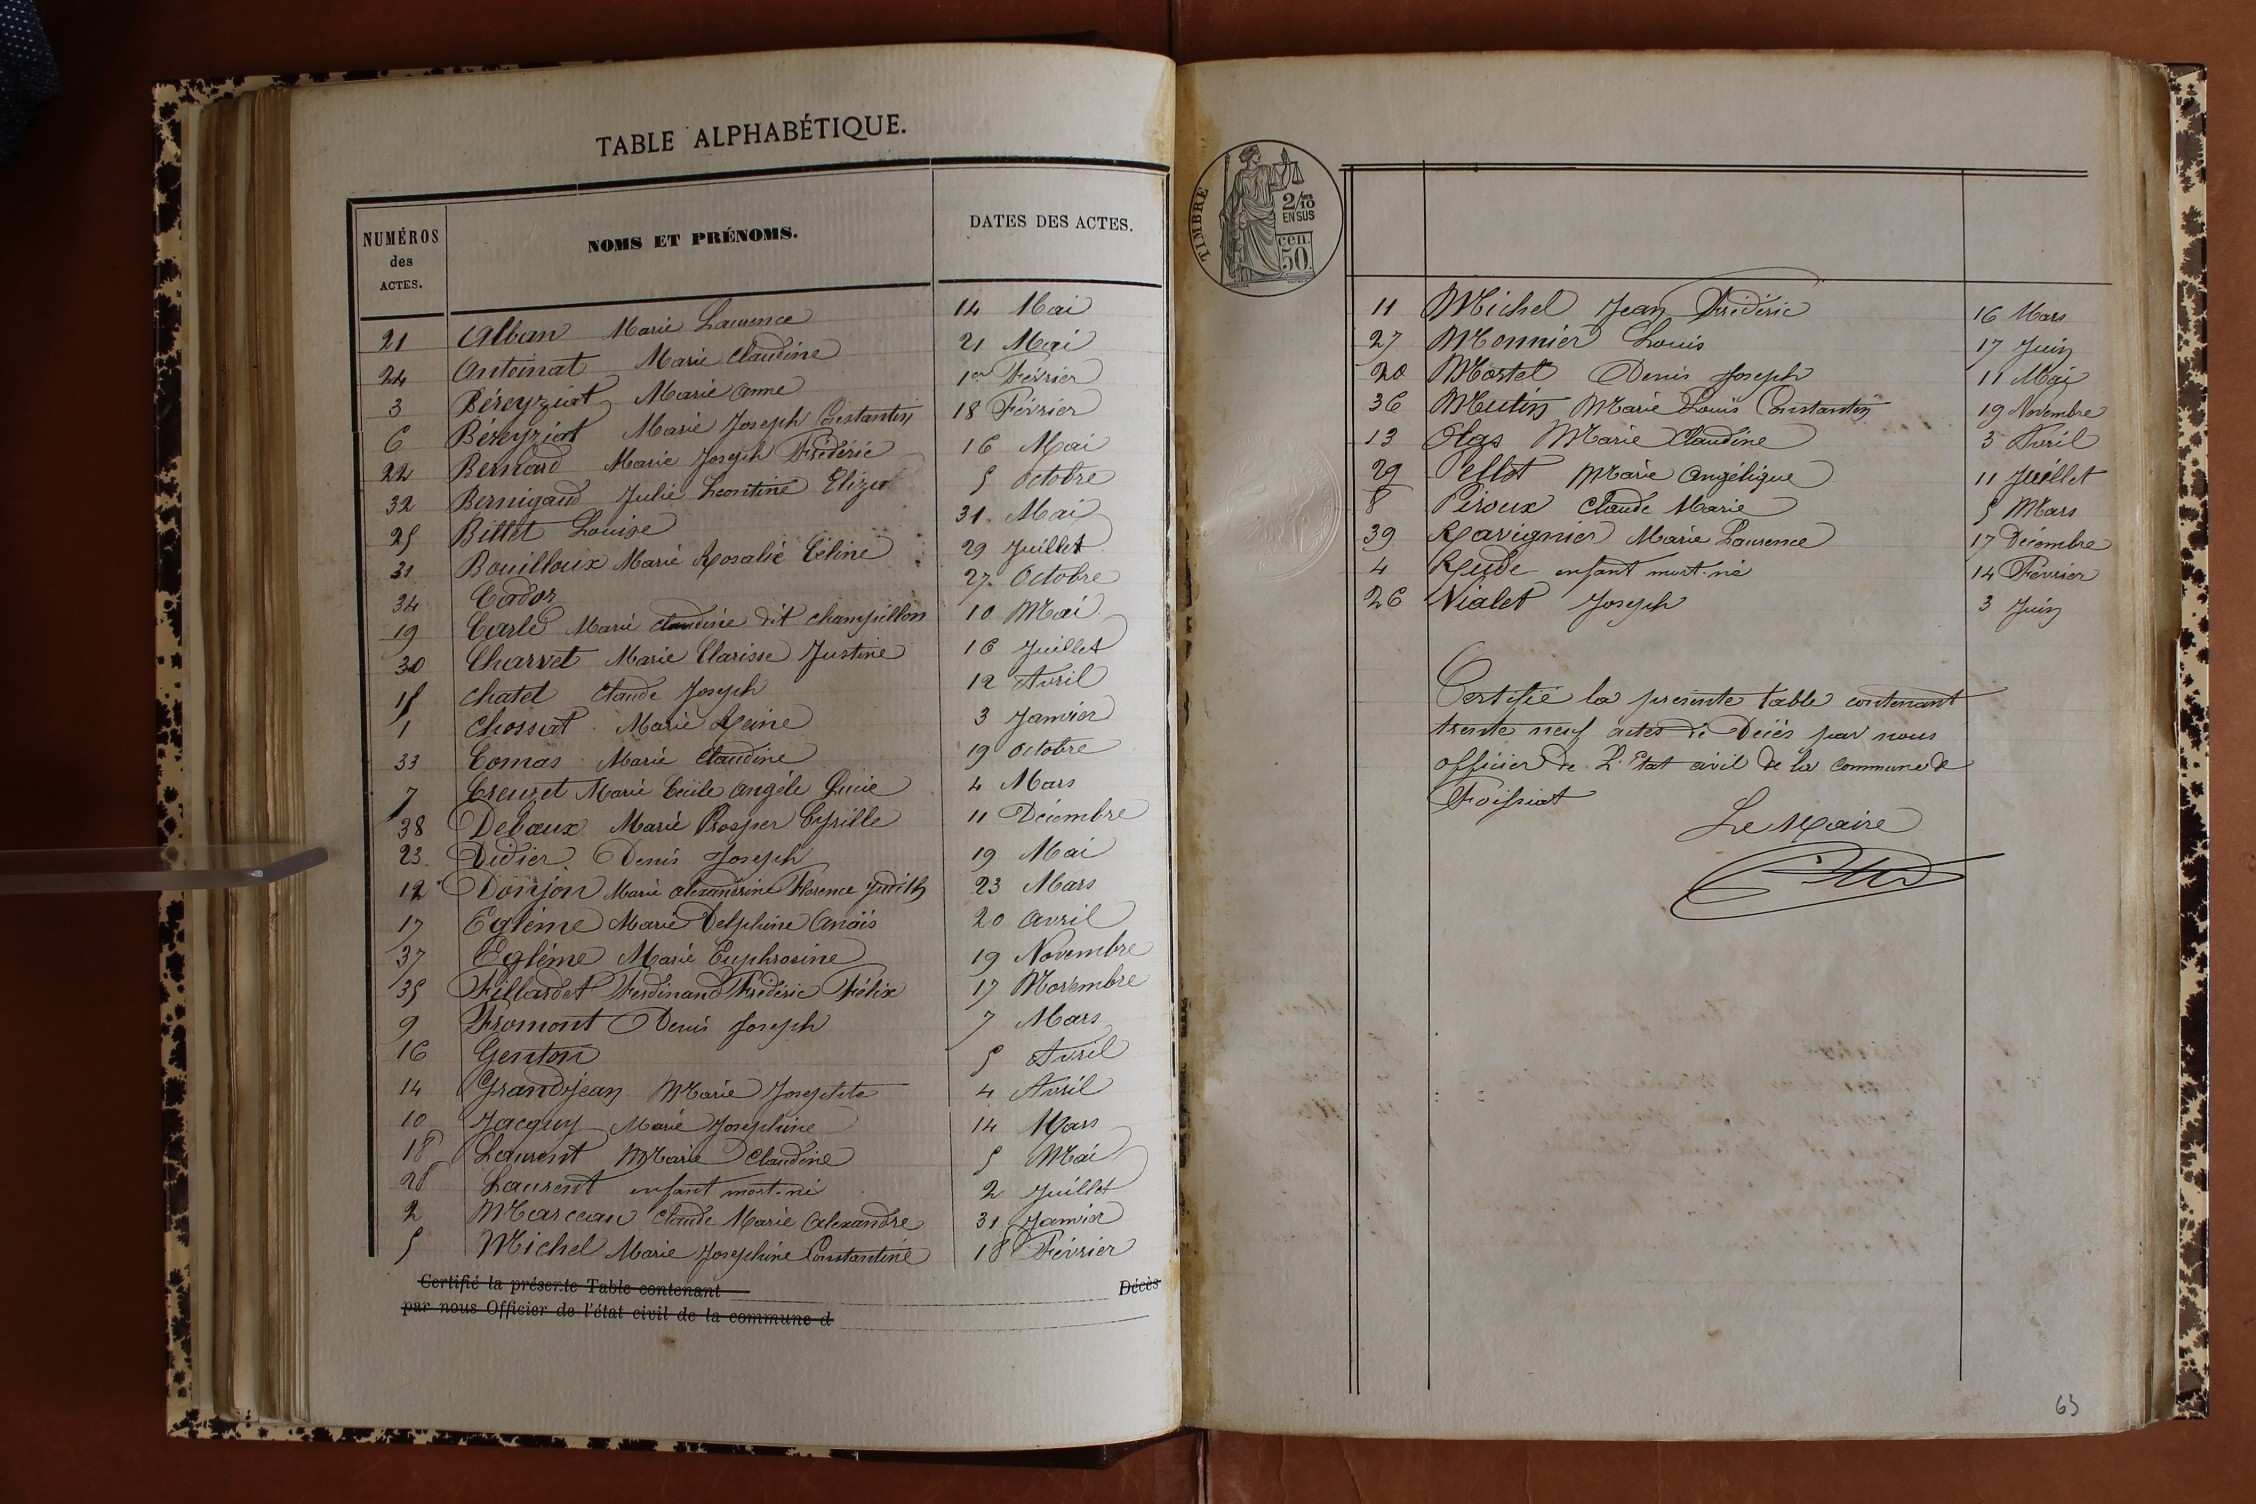 TABLE ALPHABÉTIQUE.
NUMÉROS des ACTES. NOMS ET PRÉNOMS. DATES DES ACTES.
21 Alban Marie Laurence 14 Mai
24 Antoinat Marie Claudine 21 Mai
3 Béreyziat Marie Anne 1er Février
6 Béreyziat Marie Joseph Constantin 18 Février
22 Bernard Marie Joseph Frédéric 16 Mai
32 Bernigaud Julie Léontine Eliza 5 Octobre
25 Billet Louise 31 Mai
31 Bouilloux Marie Rosalie Céline 29 Juillet
34 Cador 27 Octobre
19 Carle Marie Claudine dit Champillon 10 Mai
30 Charvet Marie Clarisse Justine 16 Juillet
15 Chatel Claude Joseph 12 Avril
1 Chossat Marie Reine 3 Janvier
33 Comas Marie Claudine 19 Octobre
7 Creuzet Marie Cécile Angèle Lucie 4 Mars
38 Debaux Marie Prosper Cyrille 11 Décembre
23 Didier Denis Joseph 19 Mai
12 Donjon Marie Alexandrine Florence Judith 23 Mars
17 Eglème Marie Delphine Anaïs 20 Avril
37 Eglème Marie Euphrosine 19 Novembre
35 Fillardet Ferdinand Frédéric Félix 17 Novembre
9 Fromont Denis Joseph 7 Mars
16 Genton 5 Avril
14 Grandjean Marie Josephte 4 Avril
10 Jacquy Marie Joséphine 14 Mars
18 Laurent Marie Claudine 5 Mai
28 Laurent enfant mort-né 2 Juillet
2 Marceau Claude Marie Alexandre 31 Janvier
5 Michel Marie Joséphine Constantine 18 Février
Certifié la présente Table contenant Décès
par nous Officier de l'état civil de la commune d
TIMBRE
2/10 EN SUS
50 cen.
11 Michel Jean Frédéric 16 Mars
27 Monnier Louis 17 Juin
20 Mortel Denis Joseph 11 Mai
36 Mutin Marie Louis Constantin 19 Novembre
13 Olgs Marie Claudine 3 Avril
29 Pellot Marie Angélique 11 Juillet
8 Piroux Claude Marie 5 Mars
39 Ravignier Marie Laurence 17 Décembre
4 Rude enfant mort-né 14 Février
26 Vialet Joseph 3 Juin
Certifié la présente table contenant
trente neuf actes de Décès par nous
officier de L'Etat civil de la commune de
Foissiat
Le Maire
63